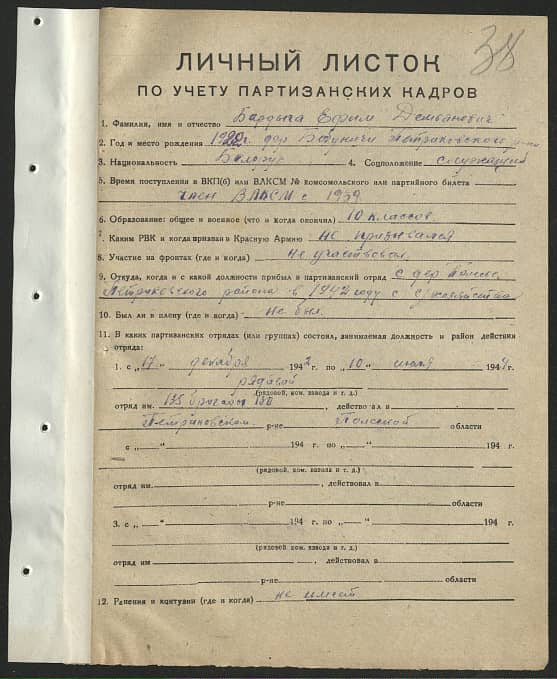 38
ЛИЧНЫЙ ЛИСТОК
ПО УЧЕТУ ПАРТИЗАНСКИХ КАДРОВ
1. Фамилия, имя и отчество Бардыга Ефим Демьянович
2. Год и место рождения 1920 г. дер Бобуничи Петриковского р-на
3. Национальность Белорус 4. Соцположение служащий
5. Время поступления в ВКП(б) или ВЛКСМ № комсомольского или партийного билета
член ВЛКСМ с 1939
6. Образование: общее и военное (что и когда окончил) 10 классов
7. Каким РВК и когда призван в Красную Армию не призывался
8. Участие на фронтах (где и когда) не участвовал
9. Откуда, когда и с какой должности прибыл в партизанский отряд с дер
Петриковского района в 1942 году с с/хозяйства
10. Был ли в плену (где и когда) не был
11. В каких партизанских отрядах (или группах) состоял, занимаемая должность и район действия
отряда:
1. с „17“ декабря 1942 г. по „10“ июля 1944 г.
рядовой
(рядовой, ком. взвода и т. д.)
отряд им. 135 бригады 130, действовал в
Петриковском р-не Полесской области
с „ “ 194 г. по „ “ 194 г.
(рядовой, ком. взвода и т. д.)
отряд им. , действовал в
р-не области
3. с „ “ 194 г. по „ “ 194 г.
(рядовой, ком. взвода и т. д.)
отряд им , действовал в
р-не области
12. Ранения и контузии (где и когда) не имеет